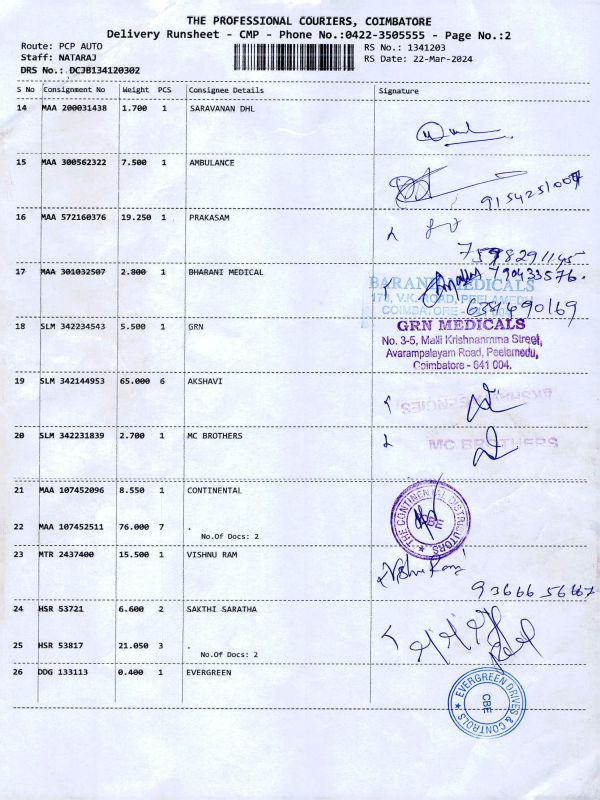 THE PROFESSIONAL COURIERS, COIMBATORE
Delivery Runsheet - CMP - Phone No.:0422-3505555 - Page No.:2
Route: PCP AUTO RS No.: 1341203
Staff: NATARAJ RS Date: 22-Mar-2024
DRS No.: DCJB134120302
S No Consignment No Weight PCS Consignee Details Signature
14 MAA 200031438 1.700 1 SARAVANAN DHL
15 MAA 300562322 7.500 1 AMBULANCE
16 MAA 572160376 19.250 1 PRAKASAM
7598291145
17 MAA 301032507 2.800 1 BHARANI MEDICAL
BARANI MEDICALS
COIMBATORE
18 SLM 342234543 5.500 1 GRN
GRN MEDICALS
No. 3-5, Malli Krishnanmma Street,
Avarampalayam Road, Peelamedu,
Coimbatore - 641 004.
19 SLM 342144953 65.000 6 AKSHAVI
20 SLM 342231839 2.700 1 MC BROTHERS
MC BROTHERS
21 MAA 107452096 8.550 1 CONTINENTAL
THE CONTINENTAL DISTRIBUTORS
CBE
22 MAA 107452511 76.000 7 .
No.Of Docs: 2
23 MTR 2437400 15.500 1 VISHNU RAM
9366656667
24 HSR 53721 6.600 2 SAKTHI SARATHA
25 HSR 53817 21.050 3 .
No.Of Docs: 2
26 DDG 133113 0.400 1 EVERGREEN
EVERGREEN DRIVES & CONTROLS
CBE